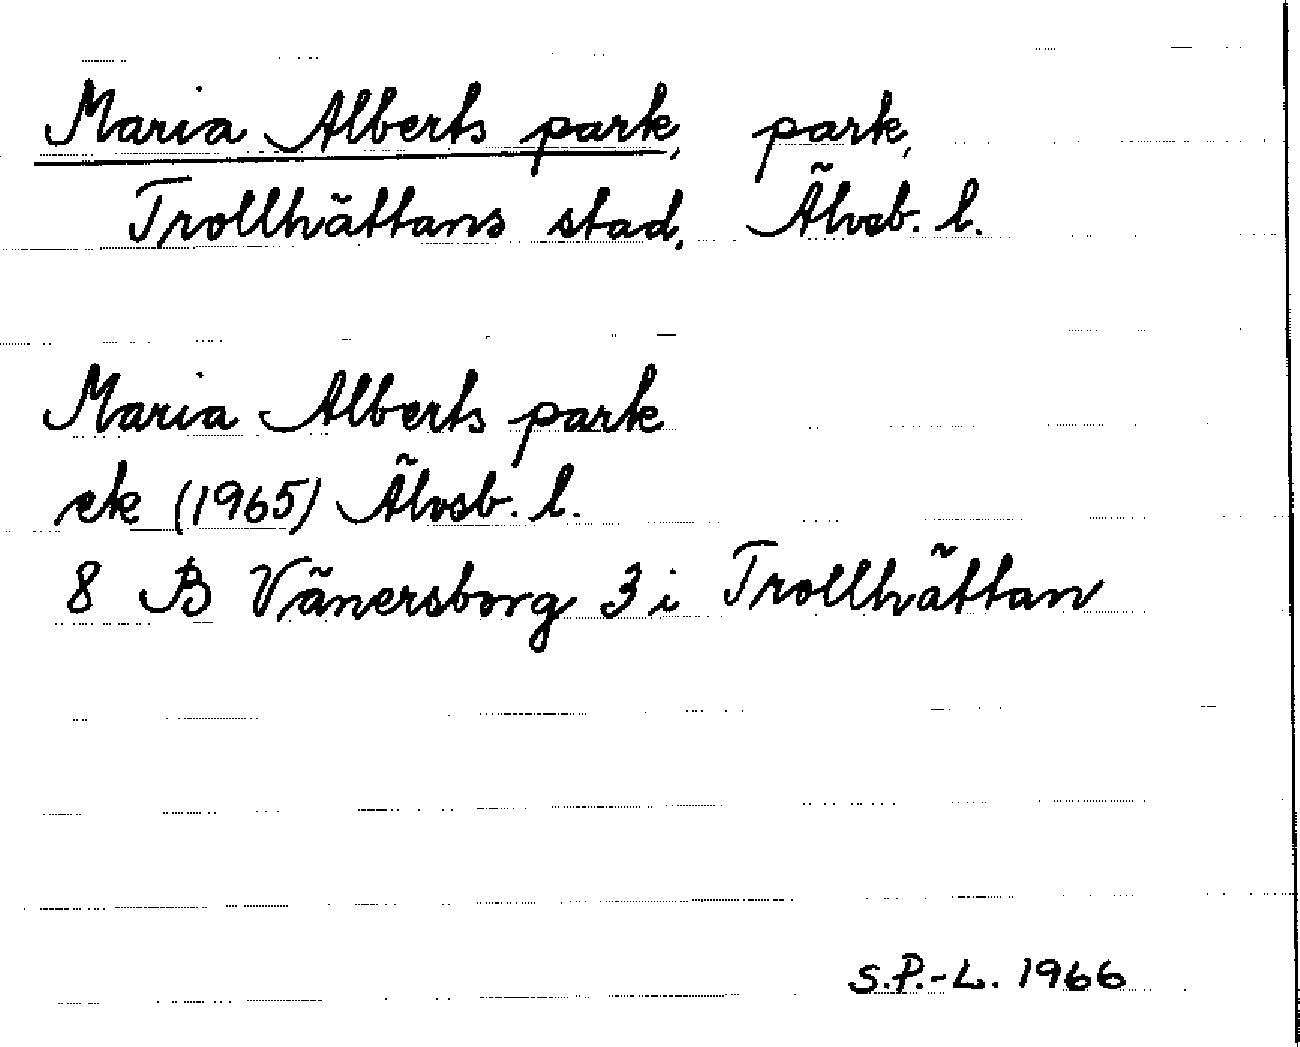 Maria Alberts park, park,
Trollhättans stad, Älvsb. l.
Maria Alberts park
ek (1965) Älvsb. l.
8 B Vänersborg 3 i Trollhättan
S.P.-L. 1966